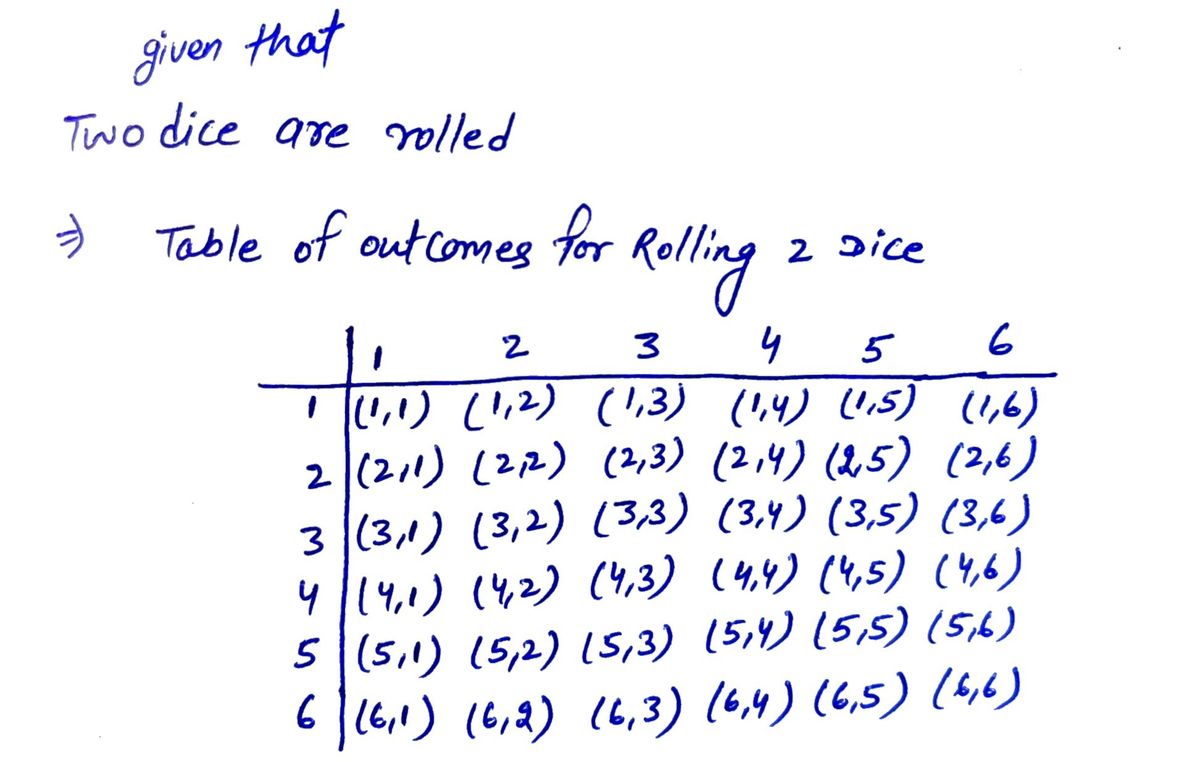 given that
Two dice are rolled
⇒ Table of outcomes for Rolling 2 Dice
1 2 3 4 5 6
1 (1,1) (1,2) (1,3) (1,4) (1,5) (1,6)
2 (2,1) (2,2) (2,3) (2,4) (2,5) (2,6)
3 (3,1) (3,2) (3,3) (3,4) (3,5) (3,6)
4 (4,1) (4,2) (4,3) (4,4) (4,5) (4,6)
5 (5,1) (5,2) (5,3) (5,4) (5,5) (5,6)
6 (6,1) (6,2) (6,3) (6,4) (6,5) (6,6)